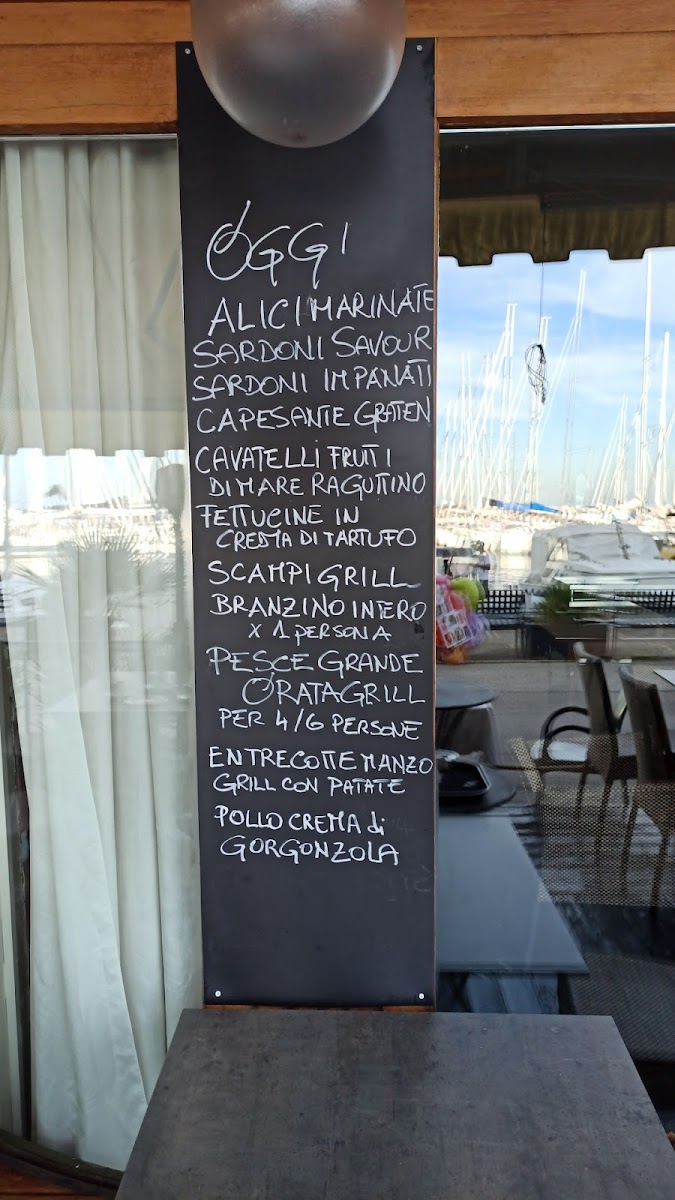 OGGI
ALICI MARINATE
SARDONI SAVOUR
SARDONI IMPANATI
CAPESANTE GRATEN
CAVATELLI FRUTTI
DI MARE RAGUTTINO
FETTUCINE IN
CREMA DI TARTUFO
SCAMPI GRILL
BRANZINO INTERO
X 1 PERSONA
PESCE GRANDE
ORATA GRILL
PER 4/6 PERSONE
ENTRECOTTE MANZO
GRILL CON PATATE
POLLO CREMA di
GORGONZOLA